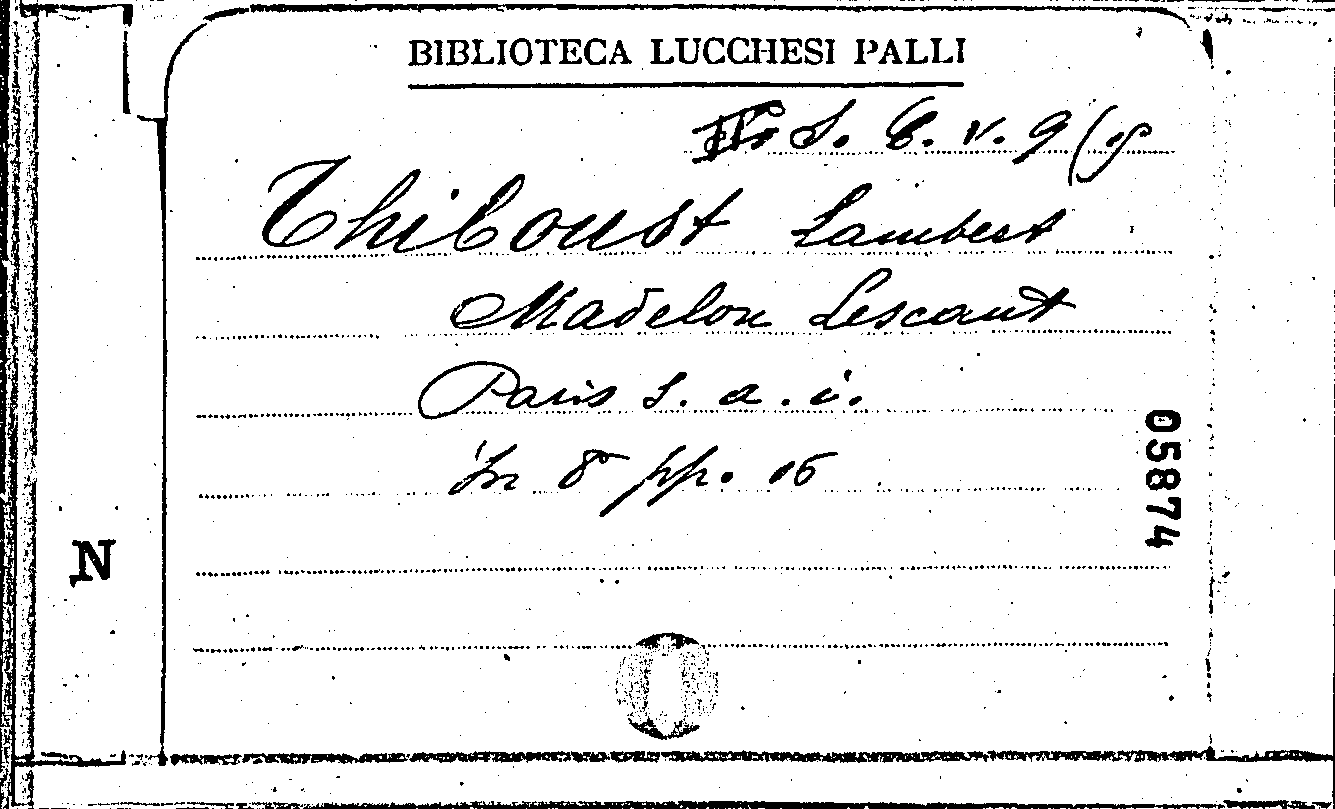 BIBLIOTECA LUCCHESI PALLI
S. C. v. 9
Thiboust Lambert
Madelon Lescaut
Paris s. a. i.
In 8° pp. 16
05874
N